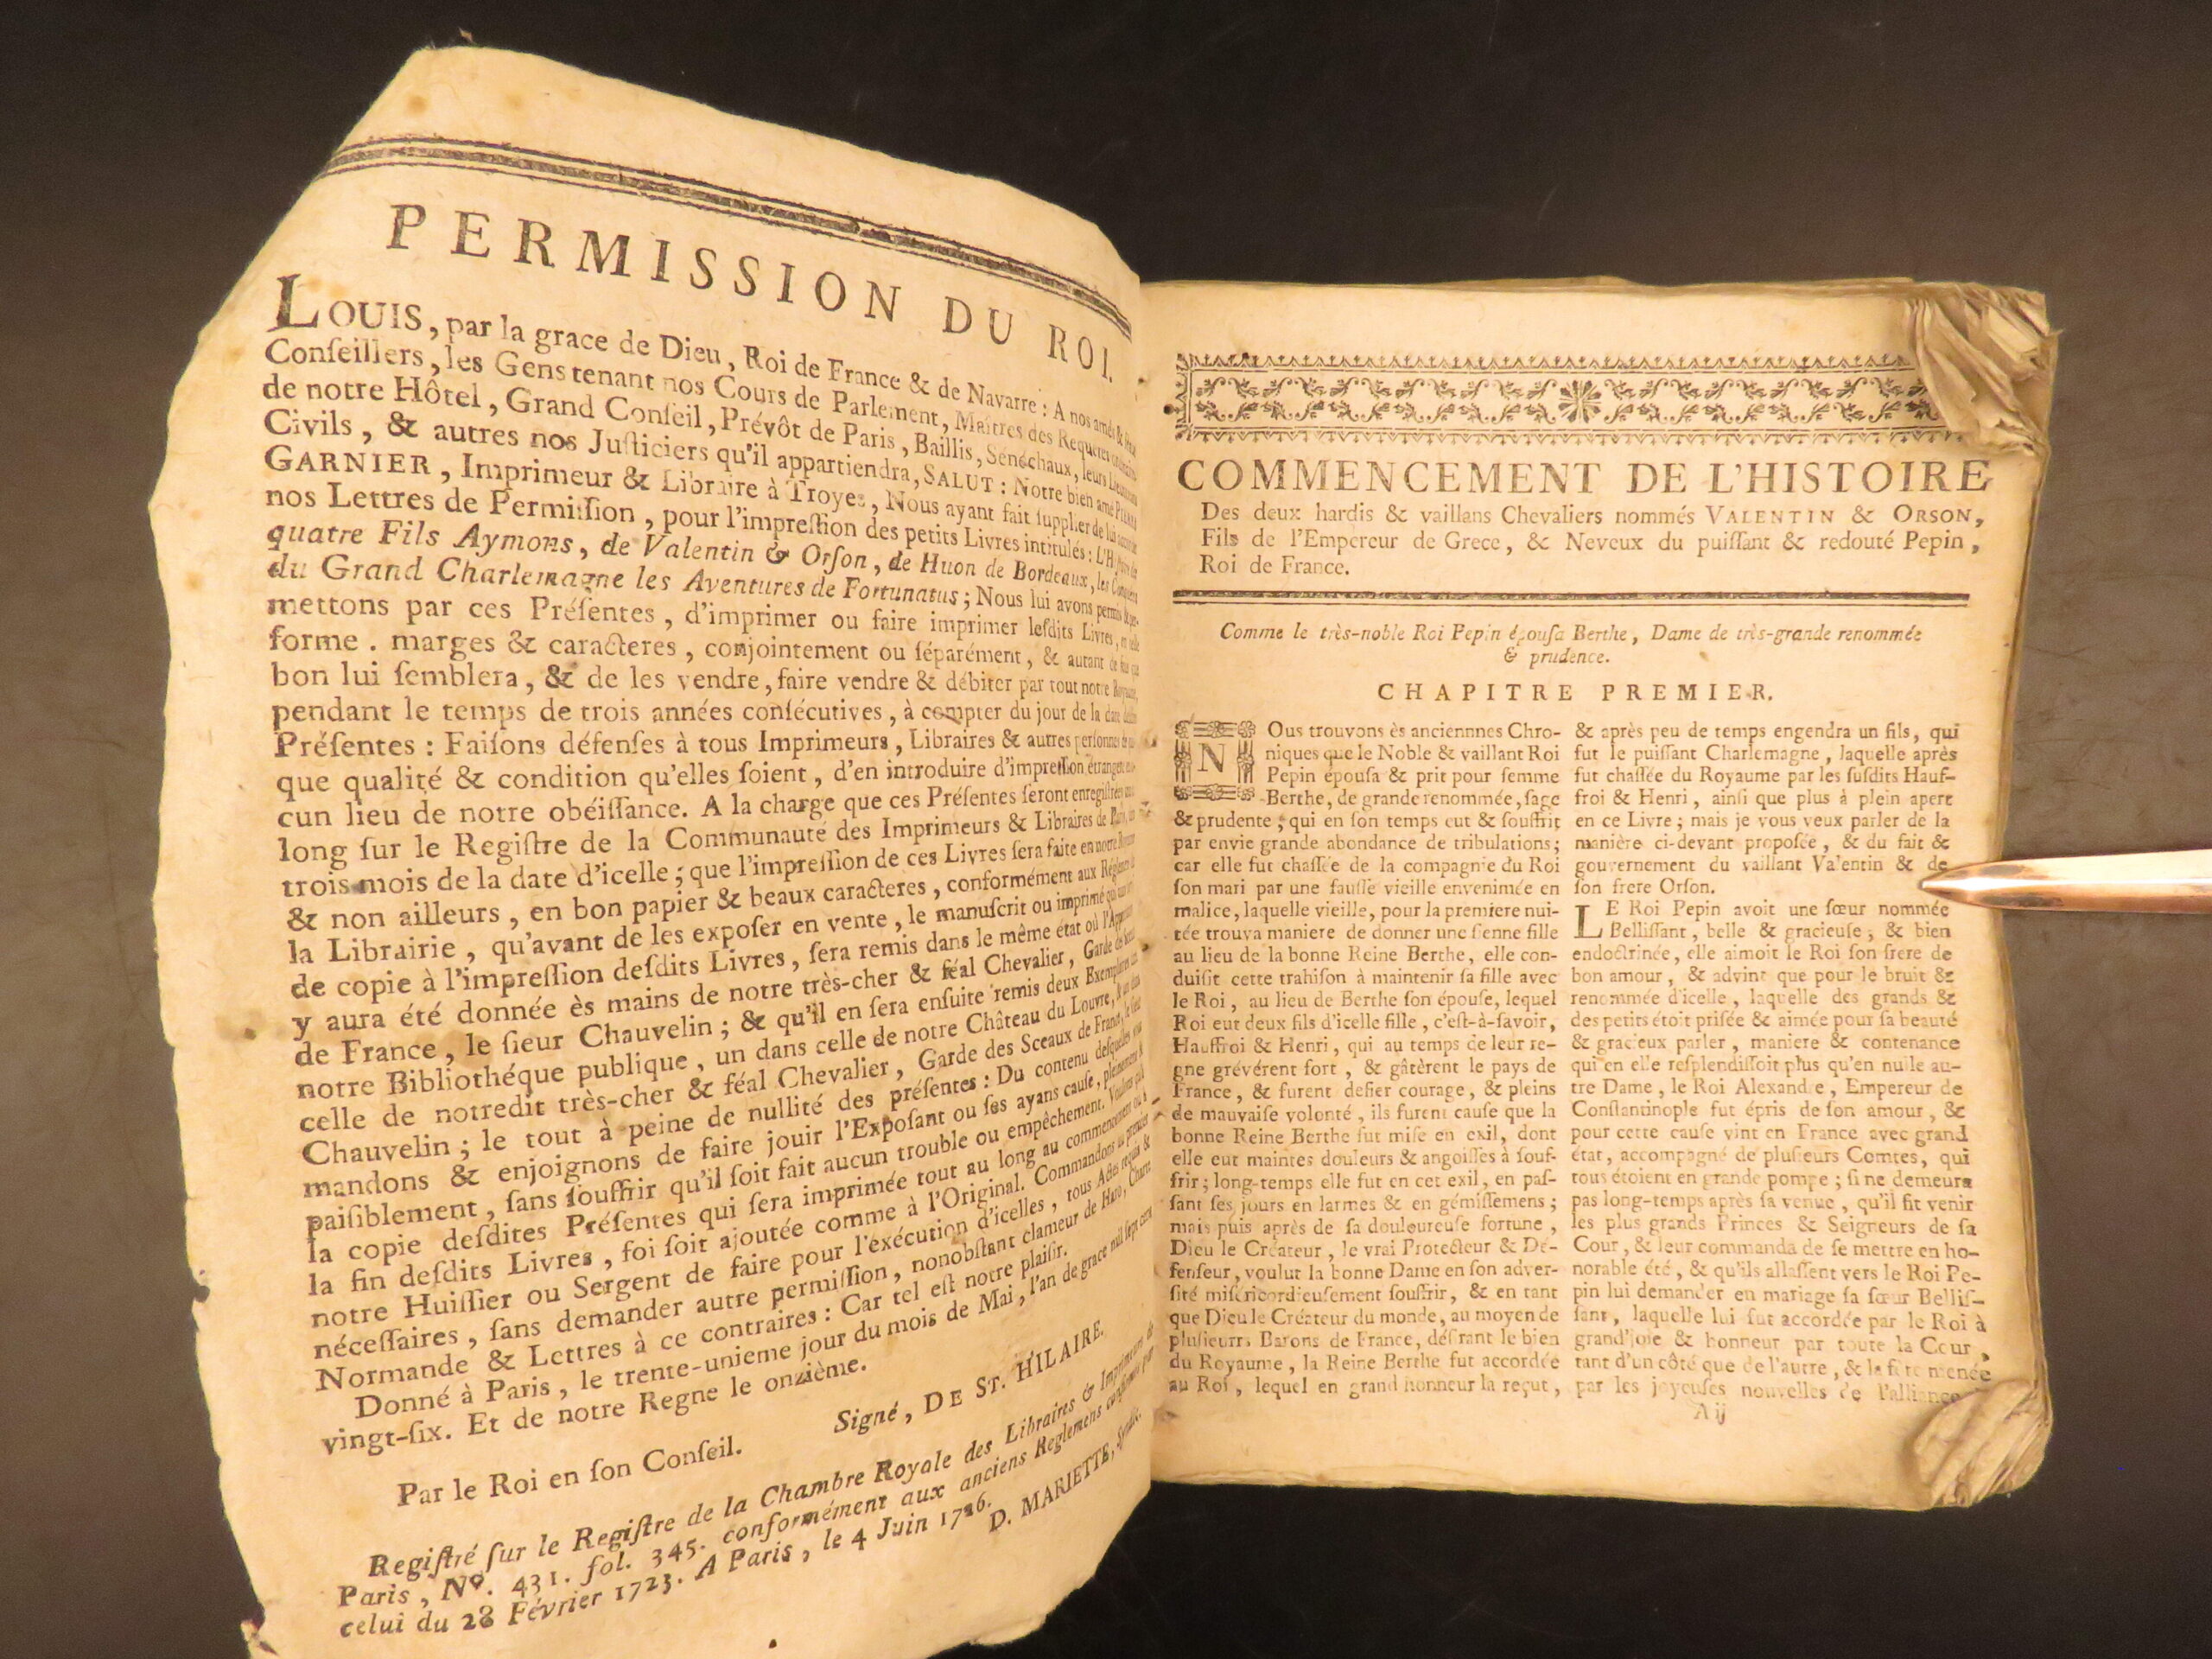 PERMISSION DU ROI.
LOUIS, par la grace de Dieu, Roi de France & de Navarre : A nos amés &
Conſeillers, les Gens tenant nos Cours de Parlement, Maîtres des Requêtes
de notre Hôtel, Grand Conſeil, Prévôt de Paris, Baillis, Sénéchaux, leurs
Civils, & autres nos Juſticiers qu'il appartiendra, SALUT : Notre bien amé
GARNIER, Imprimeur & Libraire à Troyes, Nous ayant fait ſupplier de lui
nos Lettres de Permiſſion, pour l'impreſſion des petits Livres intitulés :
quatre Fils Aymons, de Valentin & Orſon, de Huon de Bordeaux, les
du Grand Charlemagne les Aventures de Fortunatus ; Nous lui avons permis
mettons par ces Préſentes, d'imprimer ou faire imprimer leſdits Livres,
forme . marges & caracteres, conjointement ou ſéparément, & autant de
bon lui ſemblera, & de les vendre, faire vendre & débiter par tout notre
pendant le temps de trois années conſécutives, à compter du jour de la date
Préſentes : Faiſons défenſes à tous Imprimeurs, Libraires & autres perſonnes
que qualité & condition qu'elles ſoient, d'en introduire d'impreſſion
cun lieu de notre obéiſſance. A la charge que ces Préſentes ſeront
long ſur le Regiſtre de la Communauté des Imprimeurs & Libraires de
trois mois de la date d'icelle ; que l'impreſſion de ces Livres ſera faite en notre
& non ailleurs, en bon papier & beaux caracteres, conformément aux
la Librairie, qu'avant de les expoſer en vente, le manuſcrit ou imprimé
de copie à l'impreſſion deſdits Livres, ſera remis dans le même état où
y aura été donnée ès mains de notre très-cher & féal Chevalier, Garde
de France, le ſieur Chauvelin ; & qu'il en ſera enſuite remis deux
notre Bibliothéque publique, un dans celle de notre Château du Louvre,
celle de notredit très-cher & féal Chevalier, Garde des Sceaux de France,
Chauvelin ; le tout à peine de nullité des préſentes : Du contenu deſquelles
mandons & enjoignons de faire jouir l'Expoſant ou ſes ayans cauſe,
paiſiblement, ſans ſouffrir qu'il ſoit fait aucun trouble ou empêchement.
la copie deſdites Préſentes qui ſera imprimée tout au long au commencement
la fin deſdits Livres, foi ſoit ajoutée comme à l'Original. Commandons
notre Huiſſier ou Sergent de faire pour l'exécution d'icelles, tous Actes
néceſſaires, ſans demander autre permiſſion, nonobſtant clameur de Haro,
Normande & Lettres à ce contraires : Car tel eſt notre plaiſir.
Donné à Paris, le trente-unieme jour du mois de Mai, l'an de grace
vingt-ſix. Et de notre Regne le onzième.
Par le Roi en ſon Conſeil.
Signé, DE ST. HILAIRE.
Regiſtré ſur le Regiſtre de la Chambre Royale des Libraires & Imprimeurs de
Paris, No. 431. fol. 345. conformément aux anciens Reglemens
celui du 28 Février 1723. A Paris, le 4 Juin 1726.
D. MARIETTE, Syndic.
COMMENCEMENT DE L'HISTOIRE
Des deux hardis & vaillans Chevaliers nommés VALENTIN & ORSON,
Fils de l'Empereur de Grece, & Neveux du puiſſant & redouté Pepin,
Roi de France.
Comme le très-noble Roi Pepin épouſa Berthe, Dame de très-grande renommée
& prudence.
CHAPITRE PREMIER.
NOus trouvons ès anciennnes Chro-
niques que le Noble & vaillant Roi
Pepin épouſa & prit pour femme
Berthe, de grande renommée, ſage
& prudente ; qui en ſon temps eut & ſouffrit
par envie grande abondance de tribulations ;
car elle fut chaſſée de la compagnie du Roi
ſon mari par une fauſſe vieille envenimée en
malice, laquelle vieille, pour la premiere nui-
tée trouva maniere de donner une ſienne fille
au lieu de la bonne Reine Berthe, elle con-
duiſit cette trahiſon à maintenir ſa fille avec
le Roi, au lieu de Berthe ſon épouſe, lequel
Roi eut deux fils d'icelle fille, c'eſt-à-ſavoir,
Hauffroi & Henri, qui au temps de leur re-
gne grévérent fort, & gâtèrent le pays de
France, & furent defier courage, & pleins
de mauvaiſe volonté, ils furent cauſe que la
bonne Reine Berthe fut miſe en exil, dont
elle eut maintes douleurs & angoiſſes à ſouf-
frir ; long-temps elle fut en cet exil, en paſ-
ſant ſes jours en larmes & en gémiſſemens ;
mais puis après de ſa douloureuſe fortune,
Dieu le Créateur, le vrai Protecteur & Dé-
fenſeur, voulut la bonne Dame en ſon adver-
ſité miſéricordieuſement ſouffrir, & en tant
que Dieu le Créateur du monde, au moyen de
pluſieurs Barons de France, déſirant le bien
du Royaume, la Reine Berthe fut accordée
au Roi, lequel en grand honneur la reçut,
& après peu de temps engendra un fils, qui
fut le puiſſant Charlemagne, laquelle après
fut chaſſée du Royaume par les ſuſdits Hauf-
froi & Henri, ainſi que plus à plein apert
en ce Livre ; mais je vous veux parler de la
manière ci-devant propoſée, & du fait &
gouvernement du vaillant Valentin & de
ſon frere Orſon.
LE Roi Pepin avoit une ſœur nommée
Belliſſant, belle & gracieuſe ; & bien
endoctrinée, elle aimoit le Roi ſon frere de
bon amour, & advint que pour le bruit &
renommée d'icelle, laquelle des grands &
des petits étoit priſée & aimée pour ſa beauté
& gracieux parler, maniere & contenance
qui en elle reſplendiſſoit plus qu'en nulle au-
tre Dame, le Roi Alexandre, Empereur de
Conſtantinople fut épris de ſon amour, &
pour cette cauſe vint en France avec grand
état, accompagné de pluſieurs Comtes, qui
tous étoient en grande pompe ; ſi ne demeura
pas long-temps après ſa venue, qu'il fit venir
les plus grands Princes & Seigneurs de ſa
Cour, & leur commanda de ſe mettre en ho-
norable été, & qu'ils allaſſent vers le Roi Pe-
pin lui demander en mariage ſa ſœur Belliſ-
ſant, laquelle lui fut accordée par le Roi à
grand'joie & honneur par toute la Cour,
tant d'un côté que de l'autre, & la fête menée
par les joyeuſes nouvelles de l'alliance
A ij